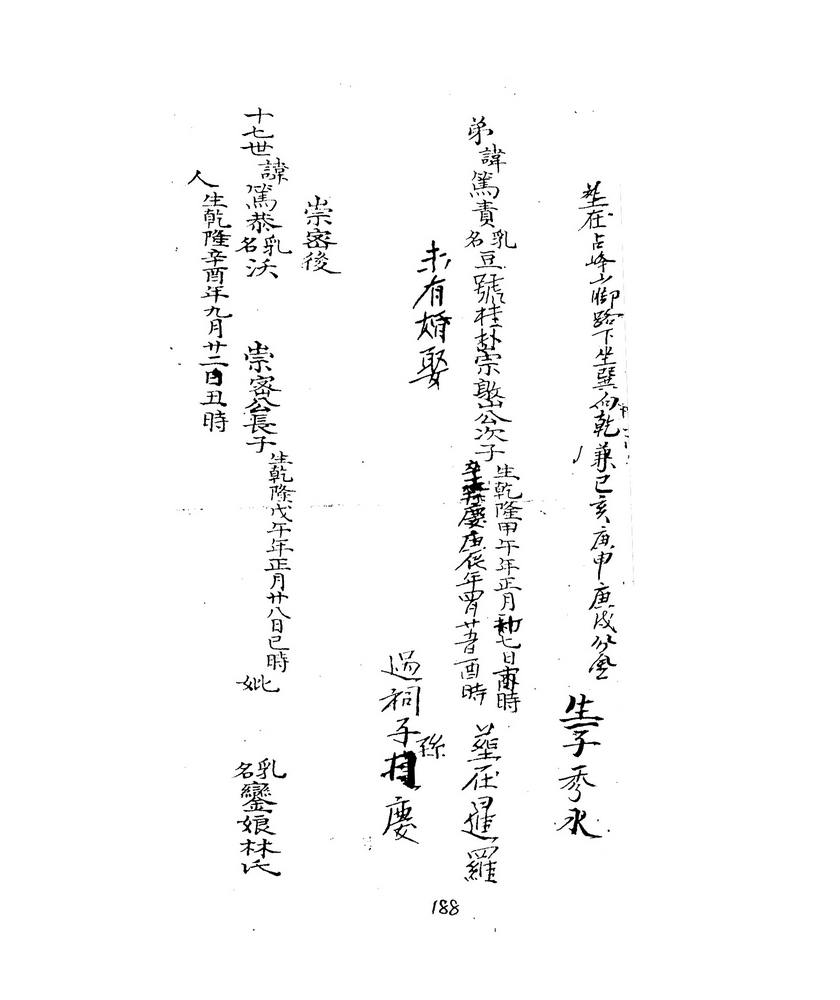 塟在占峰山脚路下坐巽向乾兼巳亥庚申庚戌分金
生子秀水
弟諱篤責乳名豆號桂赴崇敬山公次子
生乾隆甲午年正月初七日寅時
卒嘉慶庚辰年四月廿五日酉時
塟在暹羅
未有婚娶
過祠子孫 慶
崇密後
十七世諱篤恭乳名沃
崇密公長子
生乾隆戊午年正月廿八日巳時
妣
乳名鑾娘林氏
人生乾隆辛酉年九月廿二日丑時
188